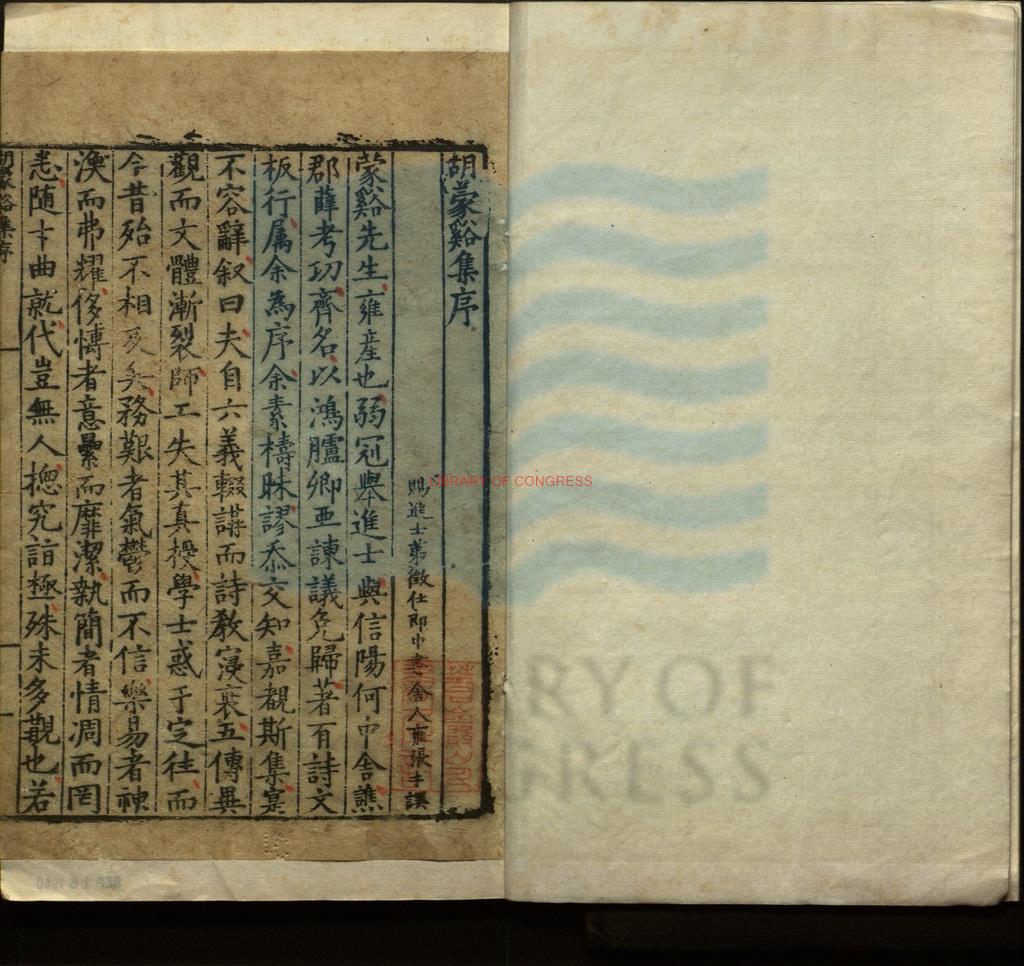 胡蒙谿集序
賜進士第徵仕郎中書舍人雍張才譔
蒙谿先生雍産也弱冠舉進士與信陽何中舍譙
郡薛考功齊名以鴻臚卿亞諫議免歸著有詩文
板行属余為序余素檮昧謬忝交知嘉覩斯集寔
不容辭叙曰夫自六義輟講而詩教寖衰五傳異
觀而文體漸裂師工失其真授學士惑于定徃而
今昔殆不相及矣務艱者氣欝而不信樂易者神
渙而弗耀侈慱者意纍而靡潔執簡者情凋而罔
恙随卞曲就代豈無人摠究詣極殊未多覯也若
胡蒙谿集序
LIBRARY OF CONGRESS
RY OF
GRESS
SEP 16 1940